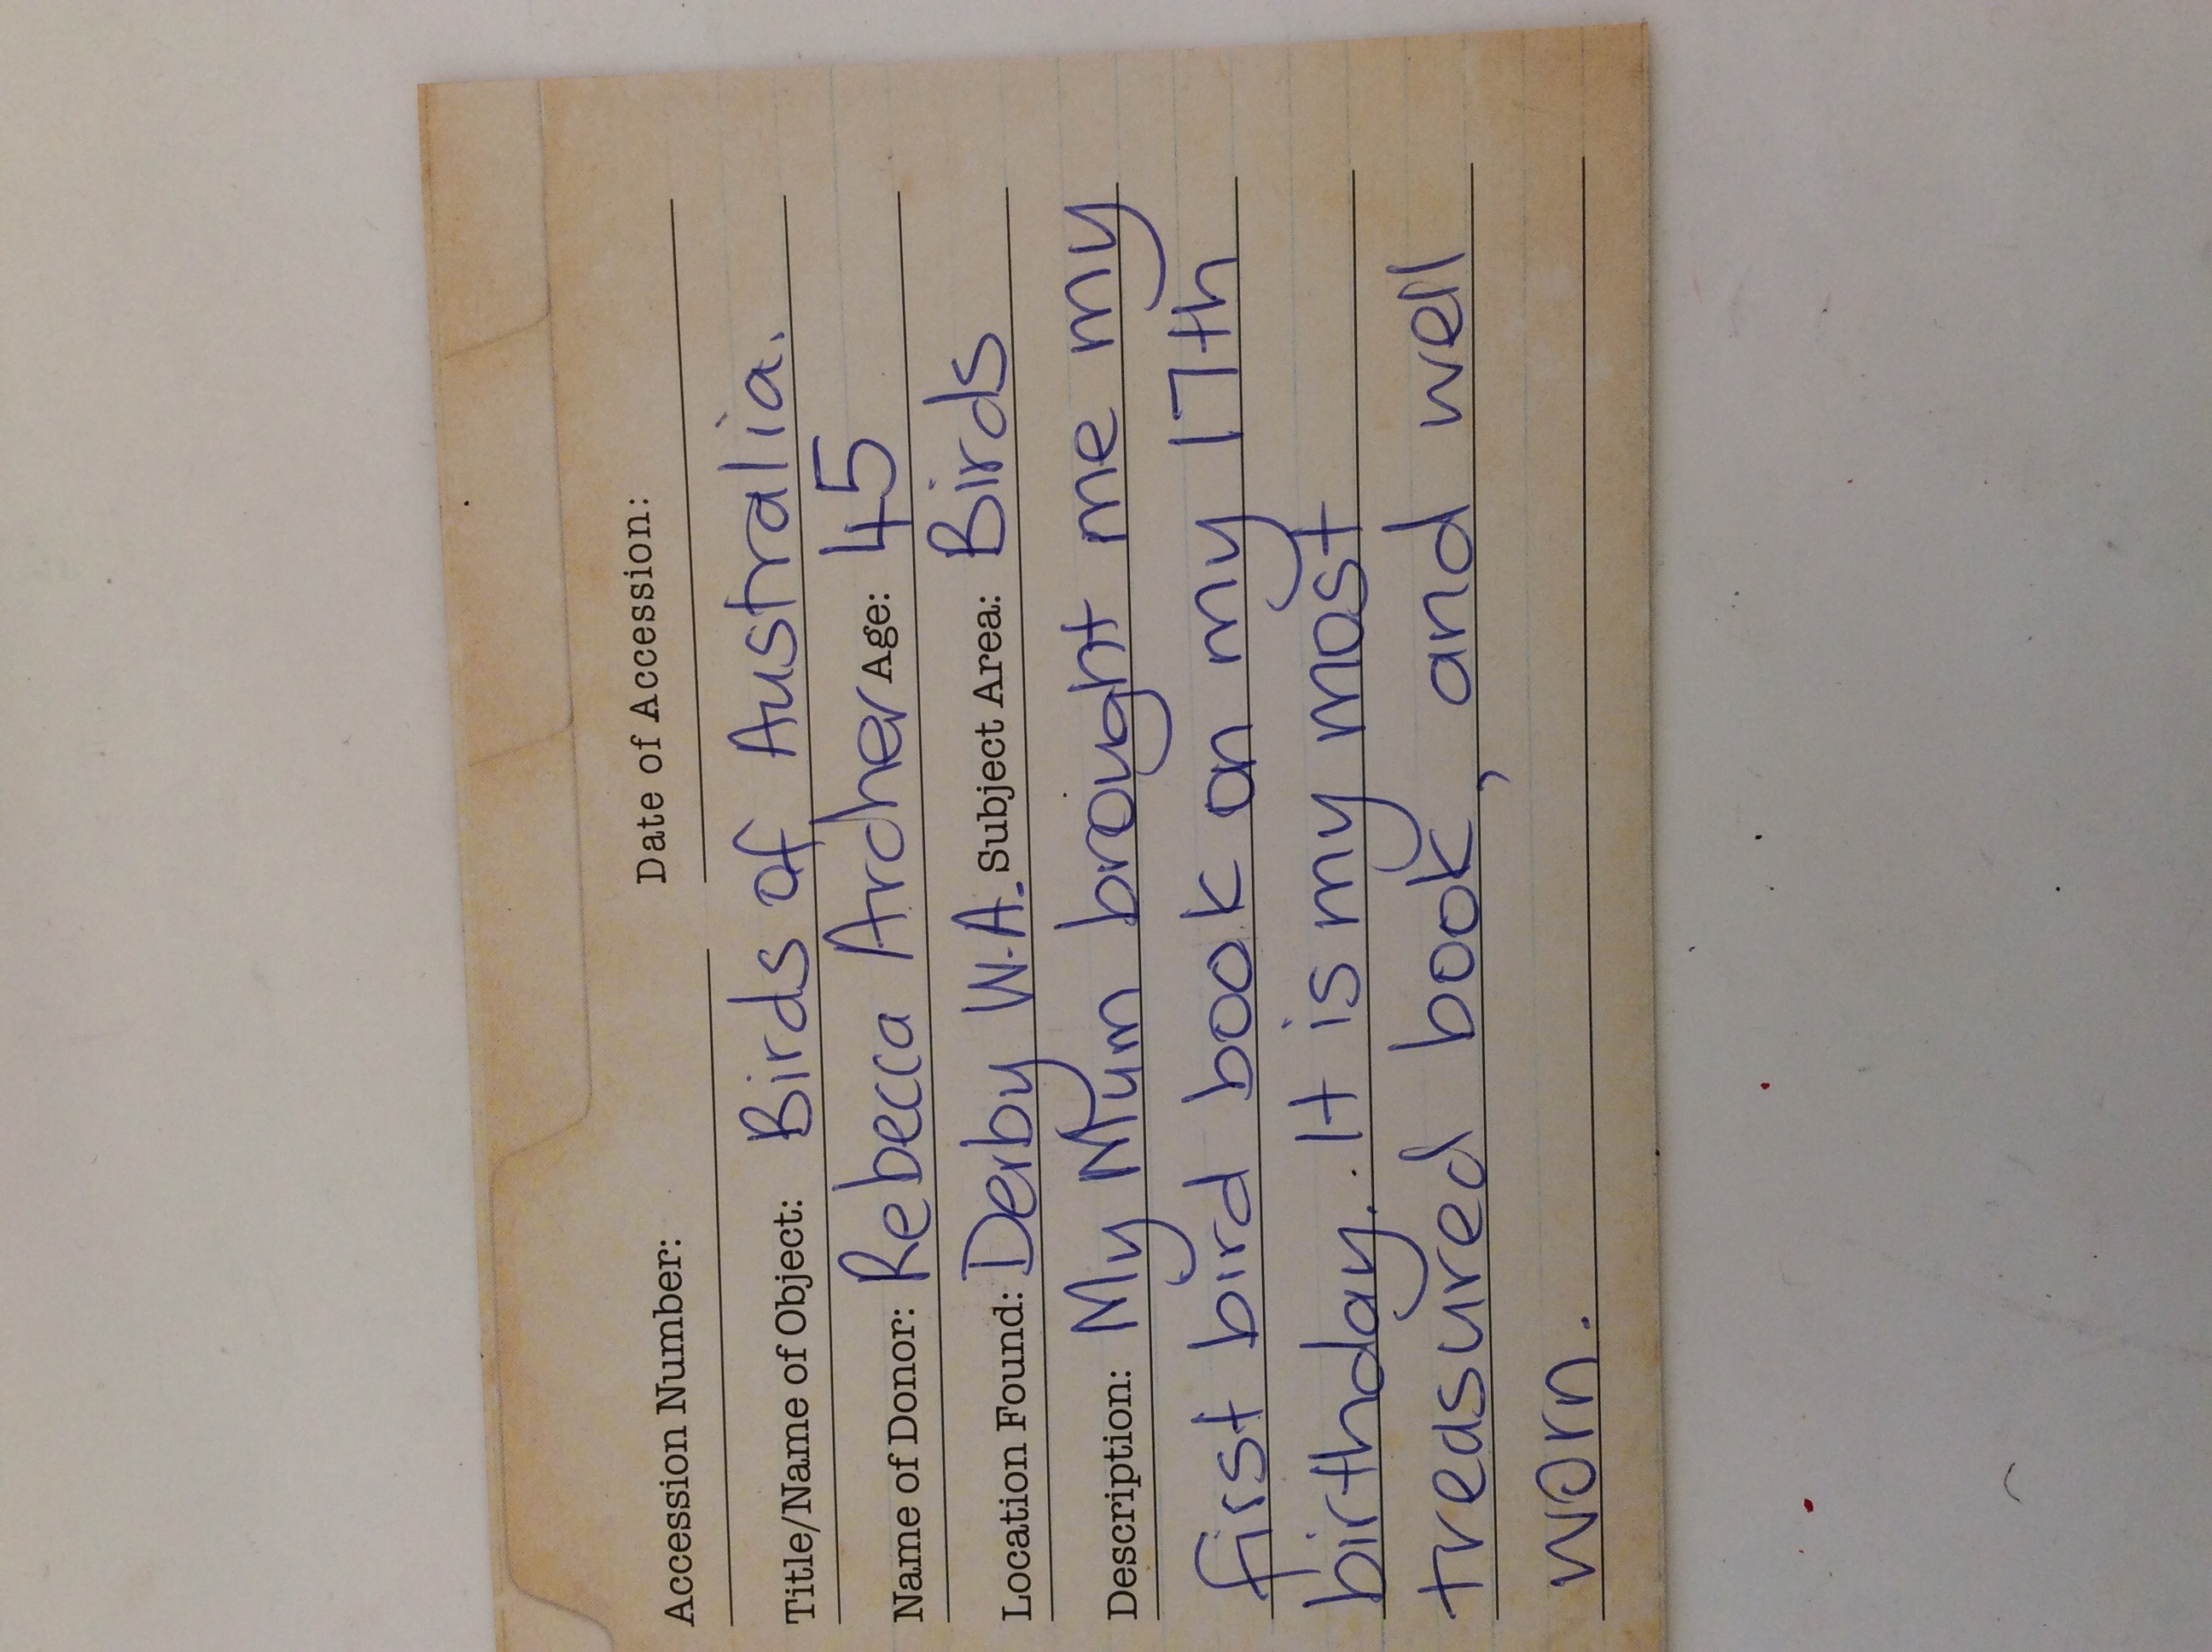 Accession Number: Date of Accession:
Title/Name of Object: Birds of Australia.
Name of Donor: Rebecca Ardner Age: 45
Location Found: Derby W.A. Subject Area: Birds
Description: My Mum brought me my
first bird book on my 17th
birthday. It is my most
treasured book, and well
worn.